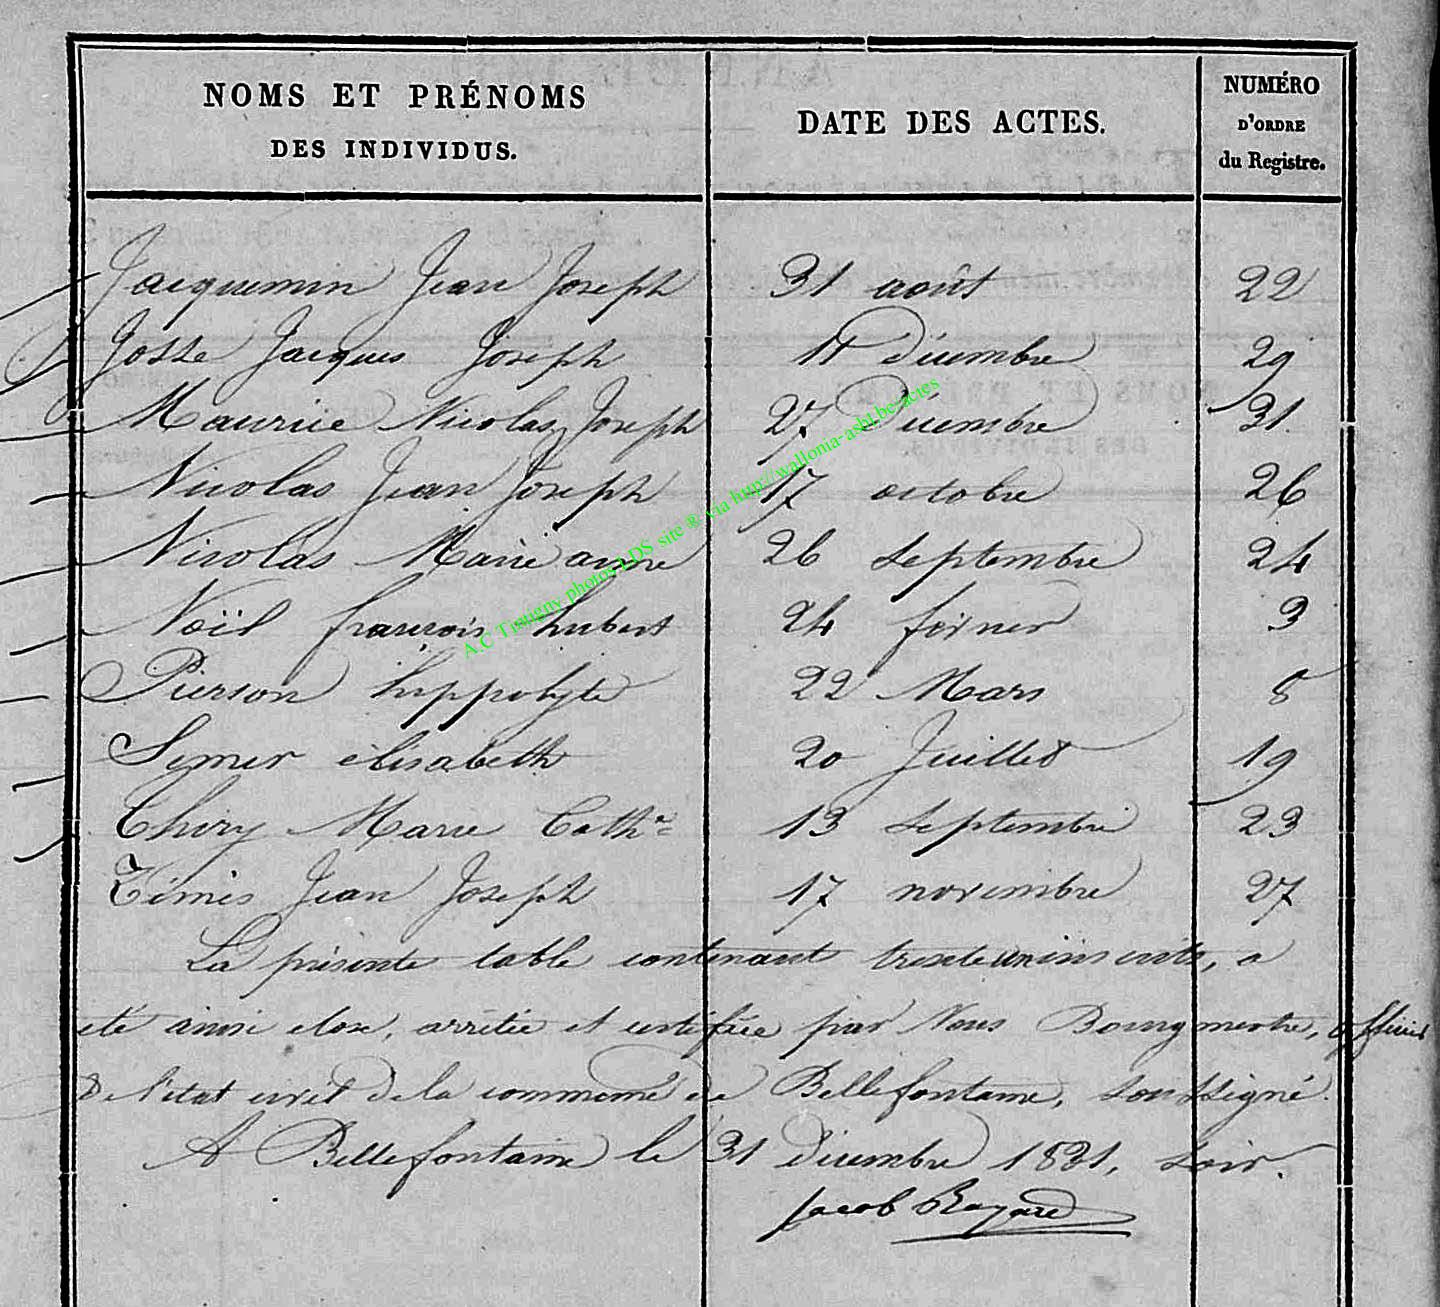 NOMS ET PRÉNOMS
DES INDIVIDUS.
DATE DES ACTES.
NUMÉRO
D'ORDRE
du Registre.
Jacquemin Jean Joseph 31 août 22
Josse Jacques Joseph 11 décembre 29
Maurice Nicolas Joseph 27 Décembre 31
Nicolas Jean Joseph 17 octobre 26
Nicolas Marie anne 26 septembre 24
Noël françois hubert 24 février 3
Pierson hippolyte 22 Mars 8
Simer élisabeth 20 Juillet 19
Thiry Marie Cathne 13 septembre 23
Timès Jean Joseph 17 novembre 27
La présente table contenant trente un inscrits, a
été ainsi close, arrêtée et certifiée par Nous Bourgmestre, officier
De l'état civil de la commune de Bellefontaine, soussigné.
A Bellefontaine le 31 décembre 1831, soir.
Jacob
A.C Tintigny photos LDS site ® via http://wallonia-asbl.be-actes